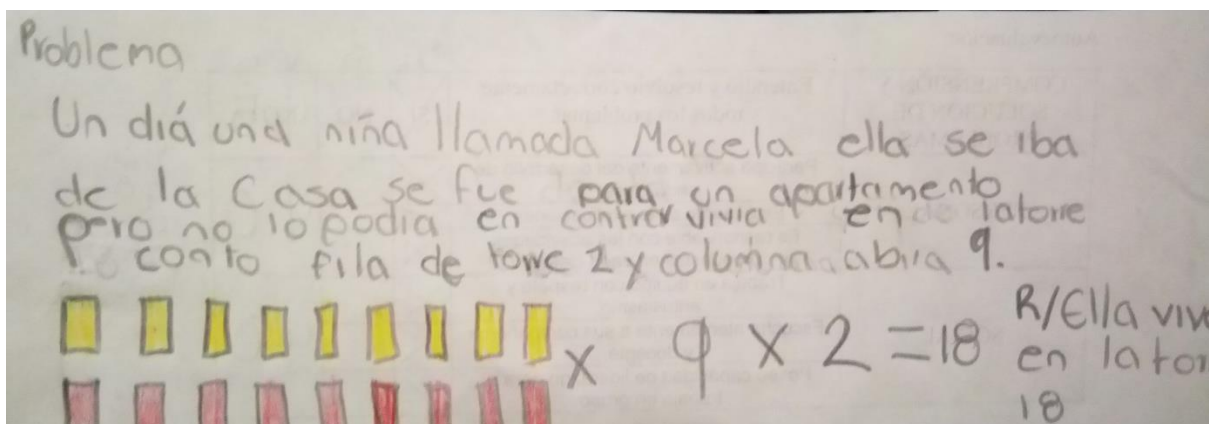 Problema
Un diá una niña llamada Marcela ella se iba
de la casa se fue para un apartamento
pero no lo podia en contrar vivia en latorre
conto fila de torre 2 y columna abia 9.
x 9 x 2 = 18
R/Ella viv
en la tor
18